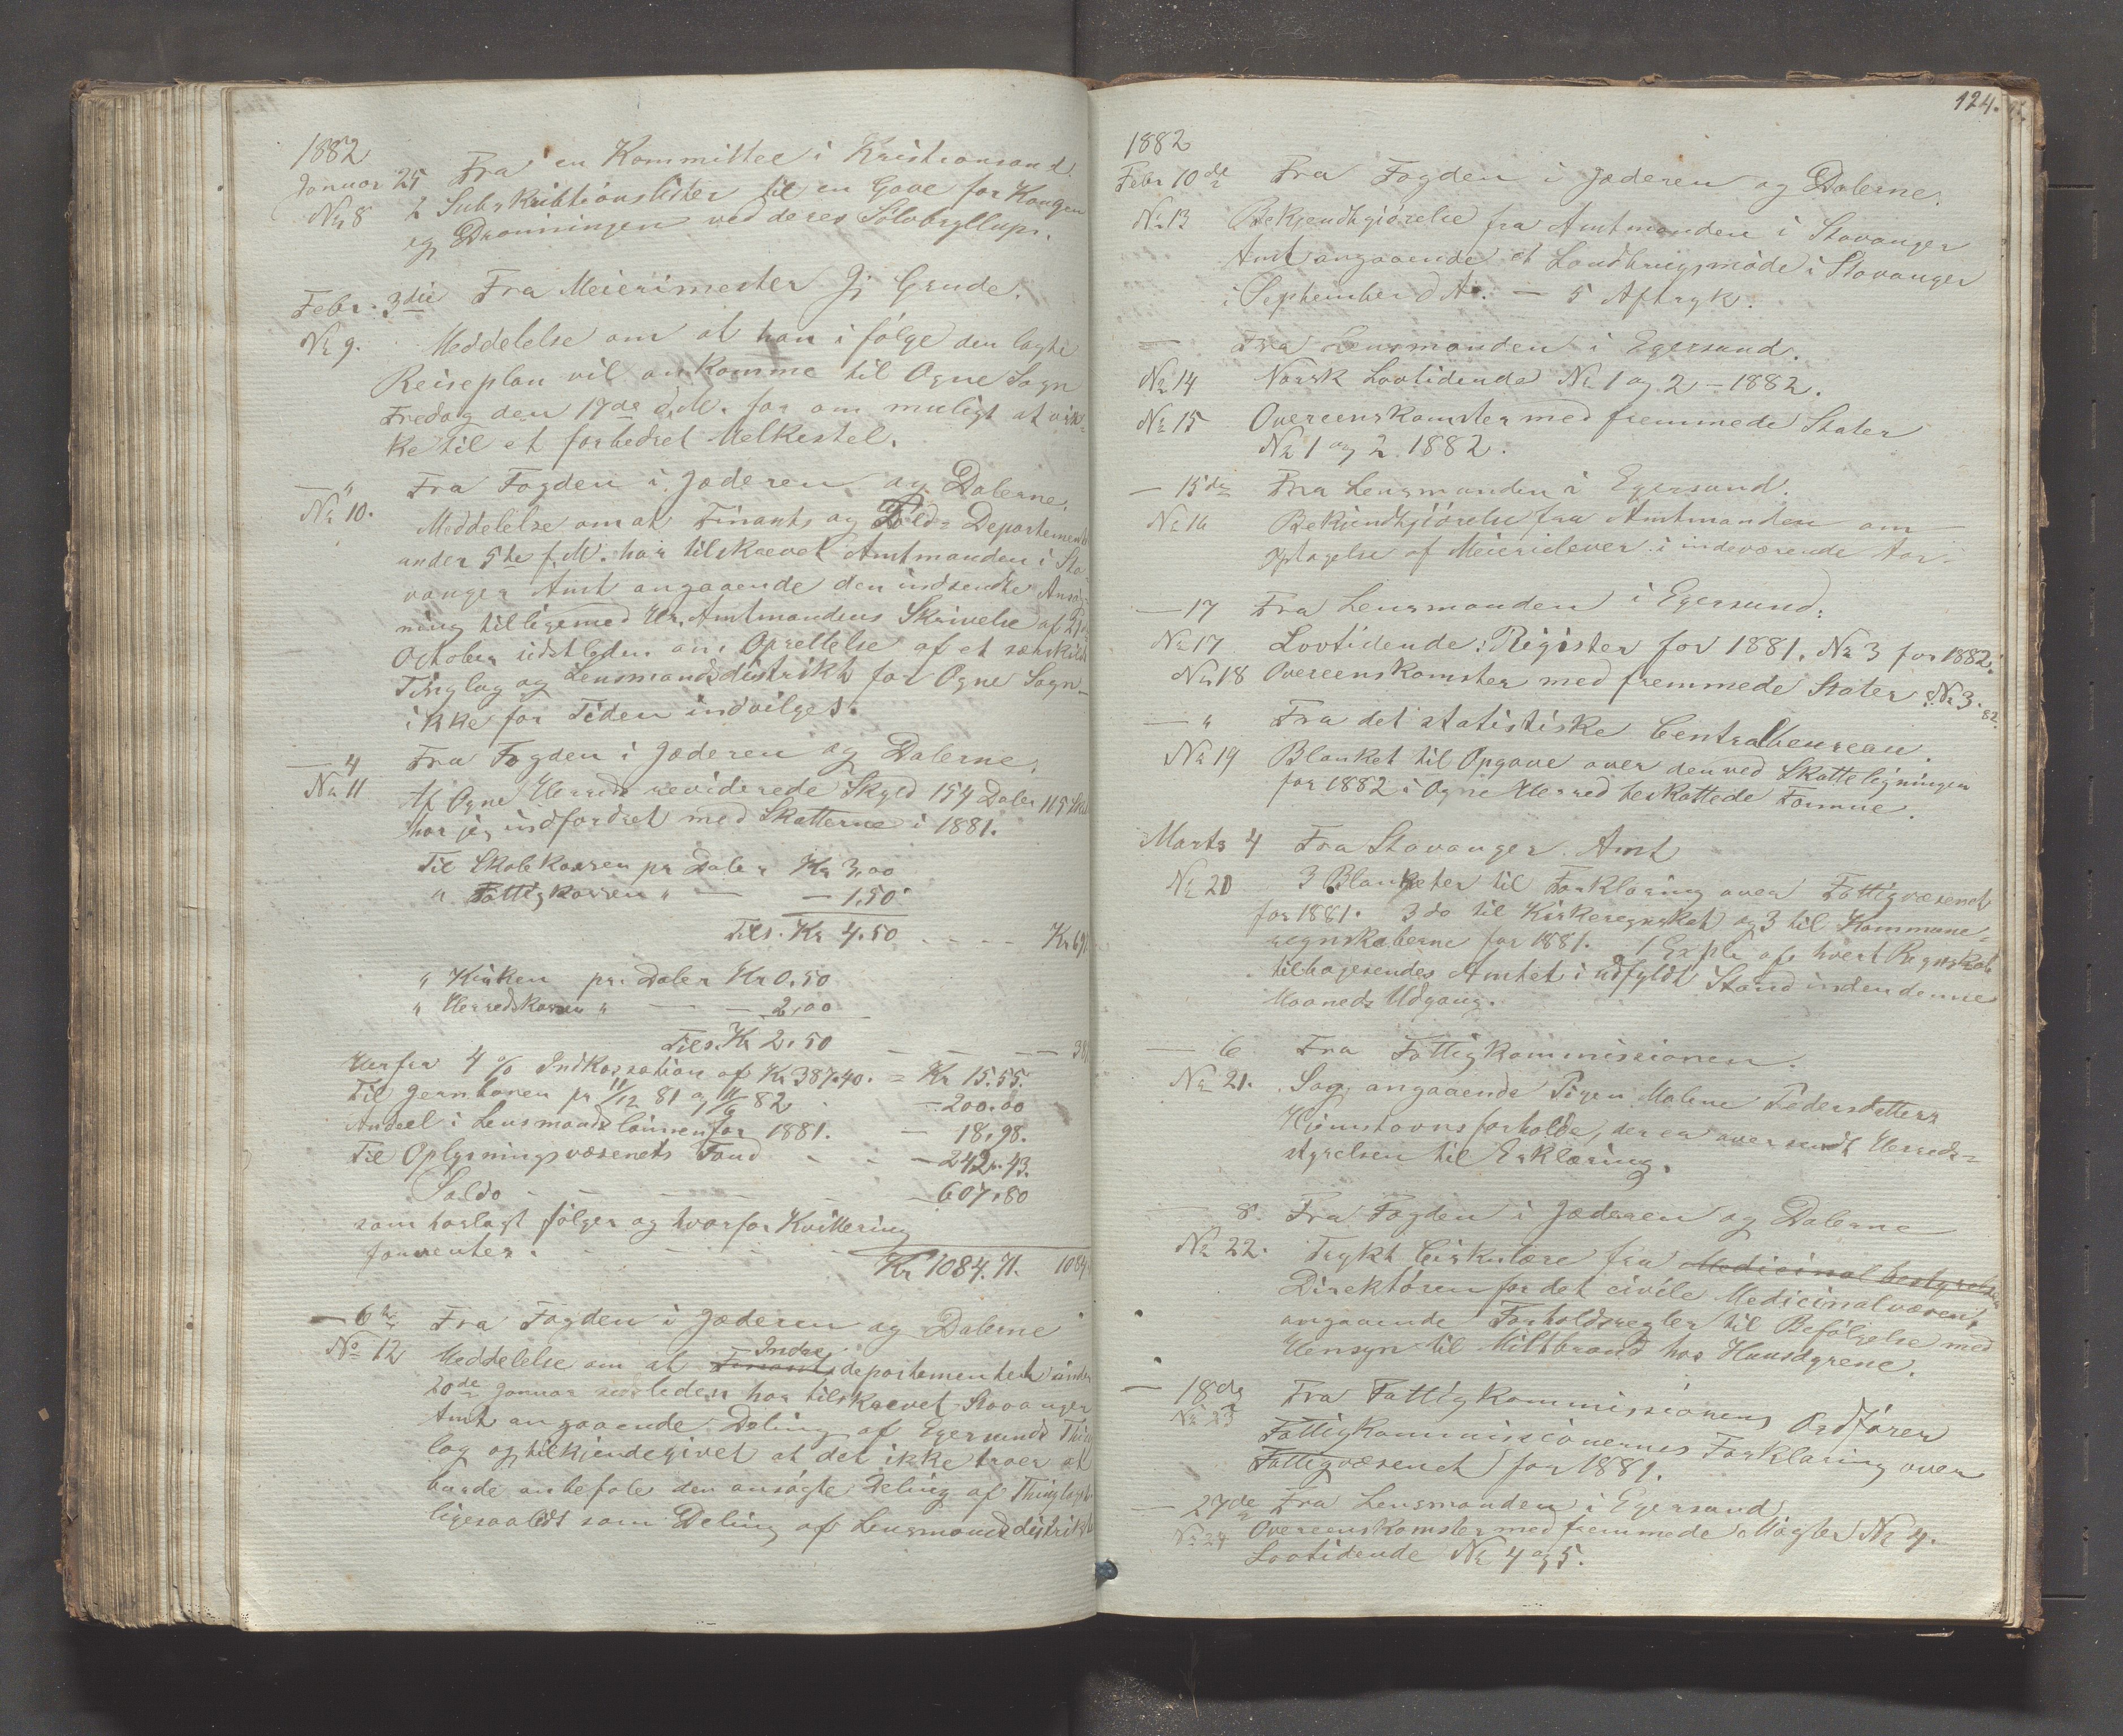 1882
Januar 25 Fra en Kommittee i Kristiansand
No 8 2 Subskribtionslister til en Gave for Kongen
og Dronningen ved deres Sölvbryllup.
Febr. 3die Fra Meierimester J. Grude.
No 9. Meddelelse om at han i fölge den lagte
Reiseplan vil ankomme til Ogne Sogn
Fredag den 17de d.M. for om muligt at vir-
ke til et forbedret Melkestel.
— " Fra Fogden i Jæderen og Dalerne.
No 10. Meddelelse om at Finants og Told-Departement
under 5te f.M. har tilskrevet Amtmanden i Sta-
vanger Amt angaaende den indsendte Ansög-
ning tilligemed Hr. Amtmandens Skrivelse af 21
October sidstleden om Oprettelse af et særskilt
Tinglag og Lensmandsdistrikt for Ogne Sogn
ikke for Tiden indvilges.
— 4 Fra Fogden i Jæderen og Dalerne,
No 11 Af Ogne Herreds reviderede Skyld 154 Daler 115 Sk
har jeg indfordret med Skatterne i 1881.
Til Skolekassen pr Daler Kr 3,00
" Fattigkassen " — — 1,50
Tils. Kr 4.50 . . . . Kr 69
" Kirken pr. Daler Kr 0.50
" Herredskassen " — — 2,00
Tils. Kr 2.50 — — — 38
Herfra 4 % Indkassation af Kr 387.40. = Kr 15.55.
Til Jernbanen pr 11/12 81 og 11/6 82 — 200.00
Andeel i Lensmandslönnen for 1881. — 18.98.
Til Oplysningsvæsenets Fond — 242.43.
Saldo — — — — 607.80
som hoslagt fölger og hvorfor Kvittering
forventes. Kr 1084.71. 1084
— 6te Fra Fogden i Jæderen og Dalerne
No 12 Meddelelse om at Finants Indre departementet under
20de Januar sidstleden har tilskrevet Stavanger
Amt angaaende Deling af Egersunds Thing
lag og tilkjendegivet at det ikke troer at
burde anbefale den ansögte Deling af Thinglaget
ligesaalidt som Deling af Lensmandsdistriktet
124.
1882
Febr 10de Fra Fogden i Jæderen og Dalerne.
No 13 Bekjendtgjörelse fra Amtmanden i Stavanger
Amt angaaende et Landbrugsmöde i Stavanger
i September d.A. — 5 Aftryk.
— Fra Lensmanden i Egersund.
No 14 Norsk Lovtidende No 1 og 2 – 1882.
No 15 Overeenskomster med fremmede Stater
No 1 og 2. 1882.
— 15de Fra Lensmanden i Egersund.
No 16 Bekjendtgjörelse fra Amtmanden om
Optagelse af Meierielever i indeværende Aar.
— 17 Fra Lensmanden i Egersund:
No 17 Lovtidende: Register for 1881. No 3 for 1882.
No 18 Overeenskomster med fremmede Stater: No 3. 82.
— " Fra det statistiske Centralbureau.
No 19 Blanket til Opgave over den ved Skatteligningen
for 1882 i Ogne Herred beskattede Formue.
Marts 4 Fra Stavanger Amt
No 20 3 Blanketer til Forklaring over Fattigvæsenet
for 1881. 3 do til Kirkeregnskab og 3 til Kommune-
regnskaberne for 1881. 1 Expl. af hvert Regnskab
tilbagesendes Amtet i udfyldt Stand inden denne
Maaneds Udgang.
— 6 Fra Fattigkommissionen.
No 21. Sag angaaende Pigen Malene Pedersdatters
Hjemstavnsforholde, der er oversendt Herreds-
styrelsen til Erklæring.
— 8. Fra Fogden i Jæderen og Dalerne
No 22. Trykt Cirkulære fra Medicinalbestyrelsen
Direktören for det civile Medicinalvæsen,
angaaende Forholdsregler til Befölgelse med
Hensyn til Miltbrand hos Huusdyrene.
— 18de Fra Fattigkommissionens Ordförer
No 23 Fattigkommissionernes Forklaring over
Fattigvæsenet for 1881.
— 27de Fra Lensmanden i Egersund
No 24 Overeenskomster med fremmede Magter No 4.
Lovtidende No 4 og 5.